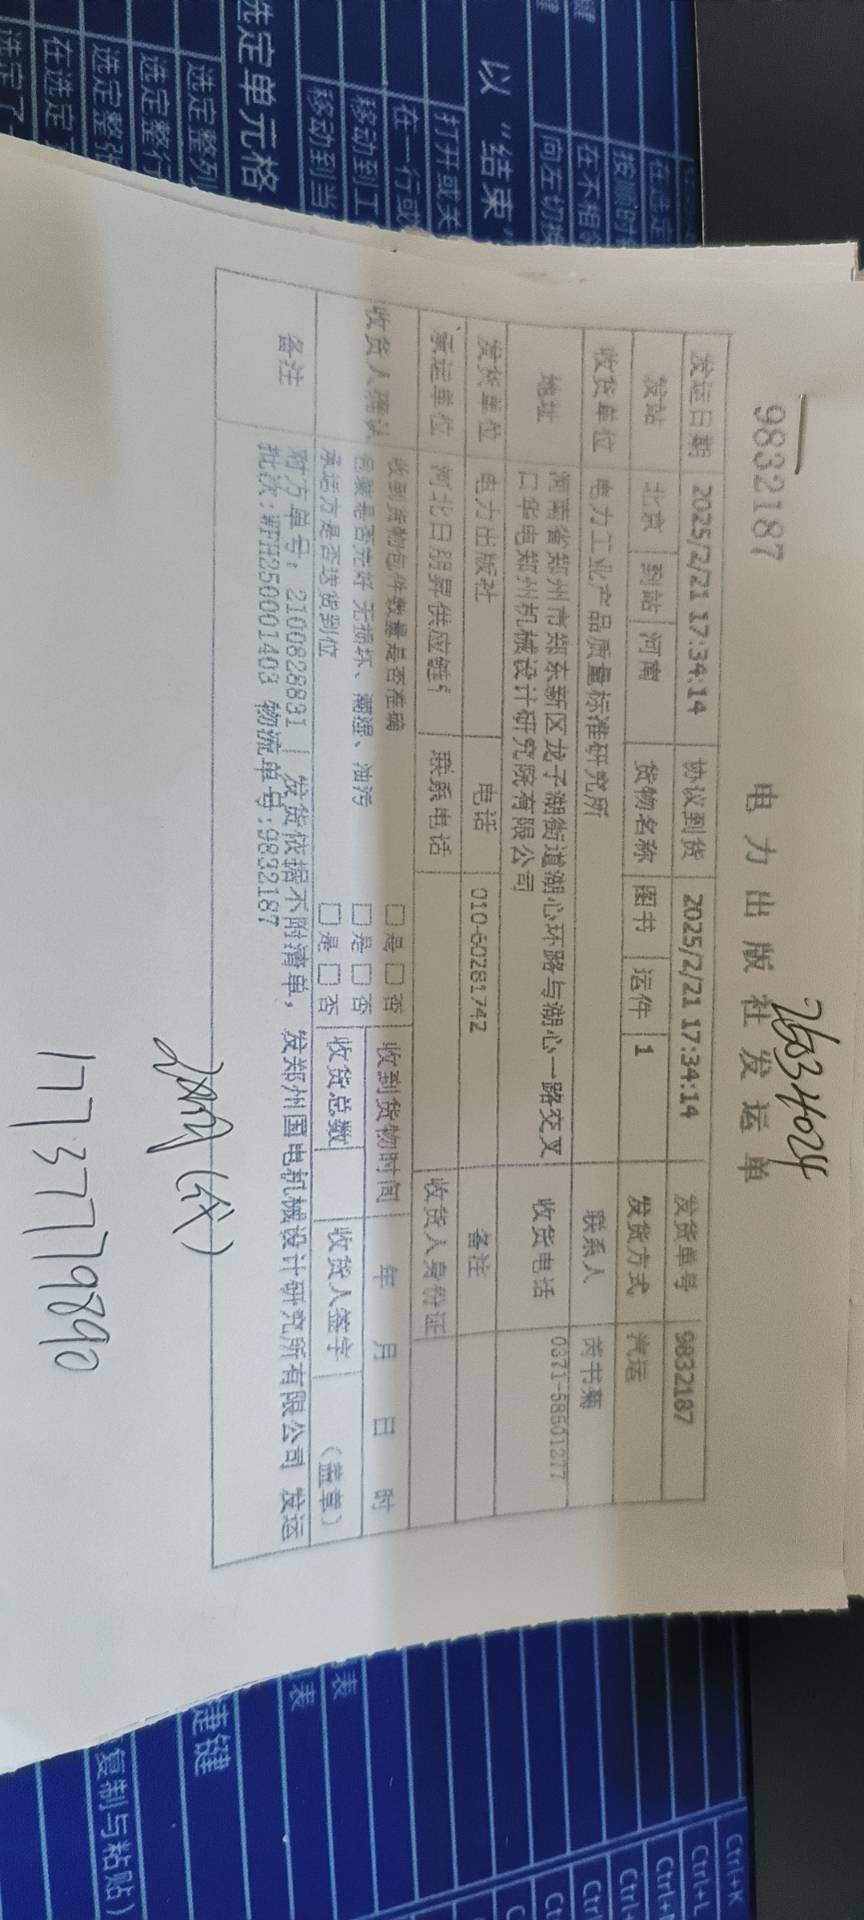 9832187
电力出版社发运单
26034024
发运日期 2025/2/21 17:34:14 协议到货 2025/2/21 17:34:14 发货单号 9832187
发站 北京 到站 河南 货物名称 图书 运件 1 发货方式 汽运
收货单位 电力工业产品质量标准研究所 联系人 芮书菊
地址 河南省郑州市郑东新区龙子湖街道湖心环路与湖心一路交叉 收货电话 0371-58501277
口华电郑州机械设计研究院有限公司
发货单位 电力出版社 电话 010-60281742 备注
承运单位 河北日朋昇供应链 联系电话 收货人身份证
收货人确认 收到货物包件数量是否准确 □是 □否 收到货物时间 年 月 日 时
包装是否完好 无损坏、潮湿、油污 □是 □否
承运方是否送货到位 □是 □否 收货总数 收货人签字 (盖章)
备注 对方单号: 2100828831 | 发货依据不附清单, 发郑州国电机械设计研究所有限公司 发运
批次:WFH250001403 物流单号:9832187
(代)
17737779890
在选定
按顺时
在不相邻
向左切换
以“结束”
打开或关
在一行或
移动到工
移动到当
选定单元格
选定整列
选定整行
选定整张
在选定
选定了
表
表
捷键
复制与粘贴)
Ctrl+K
Ctrl+L